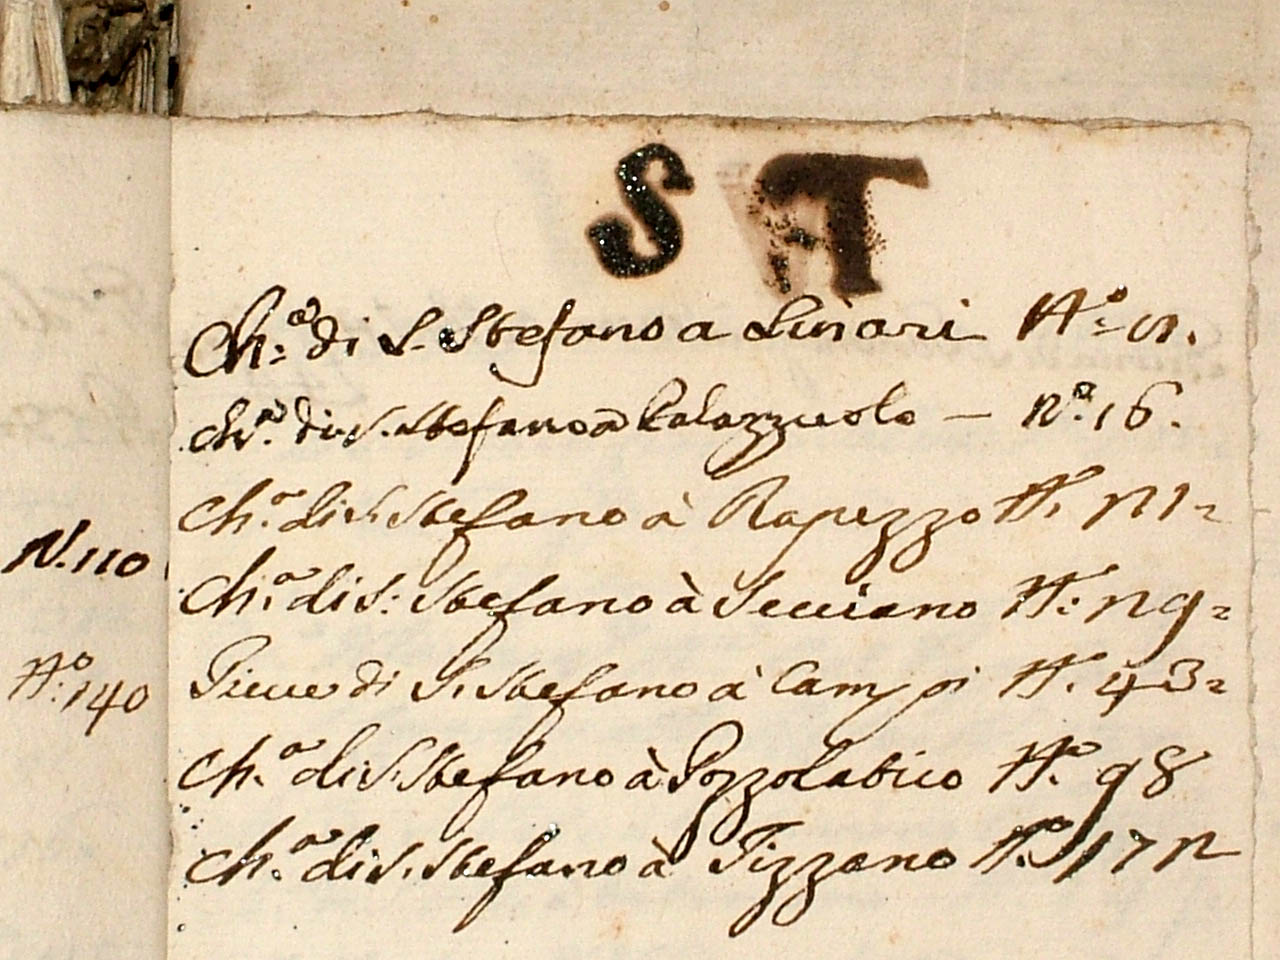 ST
Ch.ª di S. Stefano a Linari Nº 2.
Ch.ª di S. Stefano a Palazzuolo — Nº 16.
Ch.ª di S. Stefano à Rapezzo Nº 21
N. 110
Ch.ª di S. Stefano à Secciano Nº 29
Nº 140
Pieve di S. Stefano à Campi Nº 43
Ch.ª di S. Stefano à Pozzolatico Nº 98
Ch.ª di S. Stefano à Tizzano Nº 172